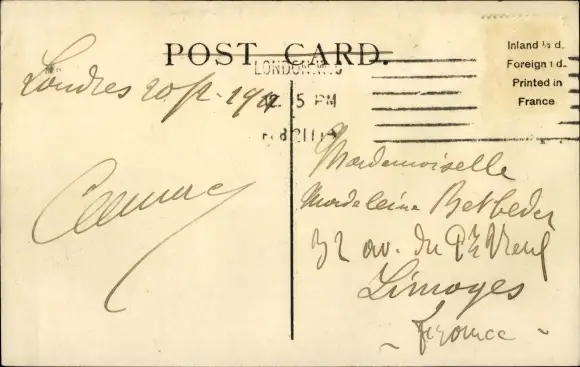 POST CARD.
Inland ½ d.
Foreign 1 d.
Printed in
France
LONDON. W.
15 PM
Londres 20/2-19
Mademoiselle
Madeleine Betbeder
32 av. du Pt Vreul
Limoges
- France -